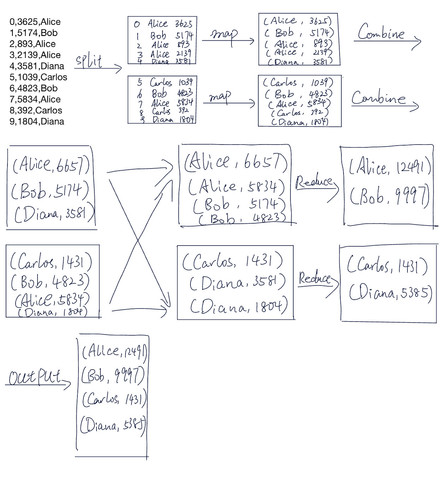 0,3625,Alice
1,5174,Bob
2,893,Alice
3,2139,Alice
4,3581,Diana
5,1039,Carlos
6,4823,Bob
7,5834,Alice
8,392,Carlos
9,1804,Diana
split
0 Alice 3625
1 Bob 5174
2 Alice 893
3 Alice 2139
4 Diana 3581
map
(Alice, 3625)
(Bob, 5174)
(Alice, 893)
(Alice, 2139)
(Diana, 3581)
Combine
5 Carlos 1039
6 Bob 4823
7 Alice 5834
8 Carlos 392
9 Diana 1804
map
(Carlos, 1039)
(Bob, 4823)
(Alice, 5834)
(Carlos, 392)
(Diana, 1804)
Combine
(Alice, 6657)
(Bob, 5174)
(Diana, 3581)
(Alice, 6657)
(Alice, 5834)
(Bob, 5174)
(Bob, 4823)
Reduce
(Alice, 12491)
(Bob, 9997)
(Carlos, 1431)
(Bob, 4823)
(Alice, 5834)
(Diana, 1804)
(Carlos, 1431)
(Diana, 3581)
(Diana, 1804)
Reduce
(Carlos, 1431)
(Diana, 5385)
output
(Alice, 12491)
(Bob, 9997)
(Carlos, 1431)
(Diana, 5385)